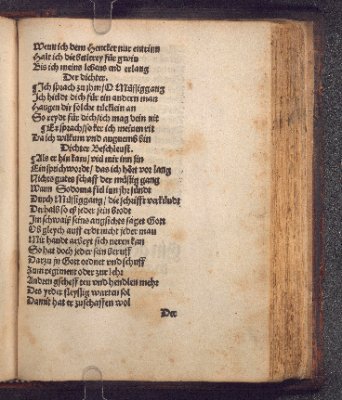 Wenn ich dem Hencker nur entrinn
Halt ich die betlerey für gwin
Bis ich meins lebens end erlang
Der dichter.
Ich sprach zu jhm / O Müssiggang
Ich hieldt dich für ein andern man
Hangen dir solche tücklein an
So reydt für dich / ich mag dein nit
Er sprach / so ker ich mein
Da ich wilkum und angenem bin
Dichter Beschleust.
Als er hin kam / viel mir inn sin
Ein sprichwordt / das ich hört vor lang
Nichts gutes schaff der müssig gang
Wann Sodoma fiel inn jhr sündt
Durch Müssiggang / die schrifft verkündt
Derhalb so eß jeder sein brodt
Im schwaiß seins angsichts saget Gott
Ob gleych auff erdt nicht jeder man
Mit handt arbeyt sich neren kan
So hat doch jeder sein beruff
Darzu jn Gott ordnet und schuff
Zum regiment oder zur lehr
Andern gscheff ten und hendlen mehr
Des yeder fleyssig warten sol
Damit hat er zuschaffen wol
Der